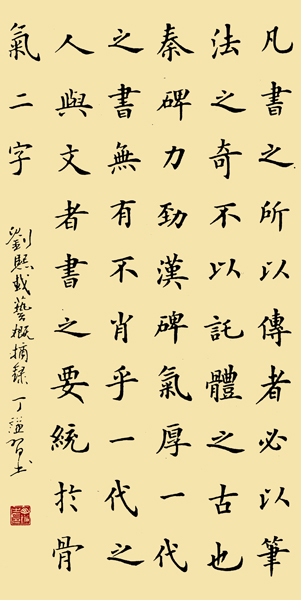 凡書之所以傳者必以筆
法之奇不以託體之古也
秦碑力勁漢碑氣厚一代
之書無有不肖乎一代之
人與文者書之要統於骨
氣二字
劉熙載藝概摘錄 丁謙書